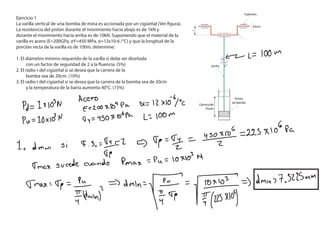 Ejercicio 1
La varilla vertical de una bomba de mina es accionada por un cigüeñal (Ver figura).
La resistencia del pistón durante el movimiento hacia abajo es de 1kN y
durante el movimiento hacia arriba es de 10kN. Suponiendo que el material de la
varilla es acero (E=200GPa, σY=450 MPa, α=12x10-6 /°C) y que la longitud de la
porción recta de la varilla es de 100m, determine:
1. El diámetro mínimo requerido de la varilla si debe ser diseñada
con un factor de seguridad de 2 a la fluencia. (5%)
2. El radio r del cigüeñal si se desea que la carrera de la
bomba sea de 20cm. (10%)
3. El radio r del cigüeñal si se desea que la carrera de la bomba sea de 20cm
y la temperatura de la barra aumenta 40°C. (15%)
Cigüeñal
Varilla
L = 100 m
Pistón
de bomba
Carrera del
Pistón
Pd = 1x10³N
Pu = 10x10³N
Acero
E = 200x10⁹ Pa α = 12x10⁻⁶/°C
σy = 450x10⁶ Pa L = 100m
1. dmin si F.S. = σy/σp = 2 => σp = σy/2 = 450x10⁶/2 = 225x10⁶ Pa
σmax sucede cuando Pmax = Pu = 10x10³ N
σmax = σp = Pu/(π/4 (dmin)²) => dmin = √(Pu/(π/4 σp)) = √(10x10³/(π/4 (225x10⁶))) => dmin = 7.5225 mm